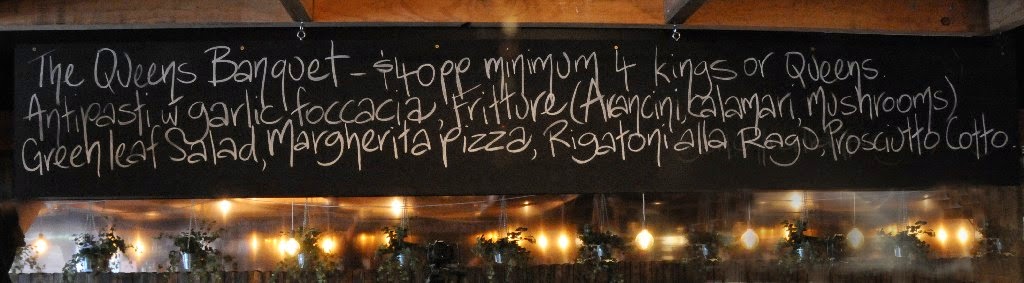 The Queens Banquet - $40pp minimum 4 kings or Queens.
Antipasti, w garlic foccacia, Fritture (Arancini, Calamari, Mushrooms)
Green leaf Salad, Margherita pizza, Rigatoni alla Ragu, Prosciutto Cotto.